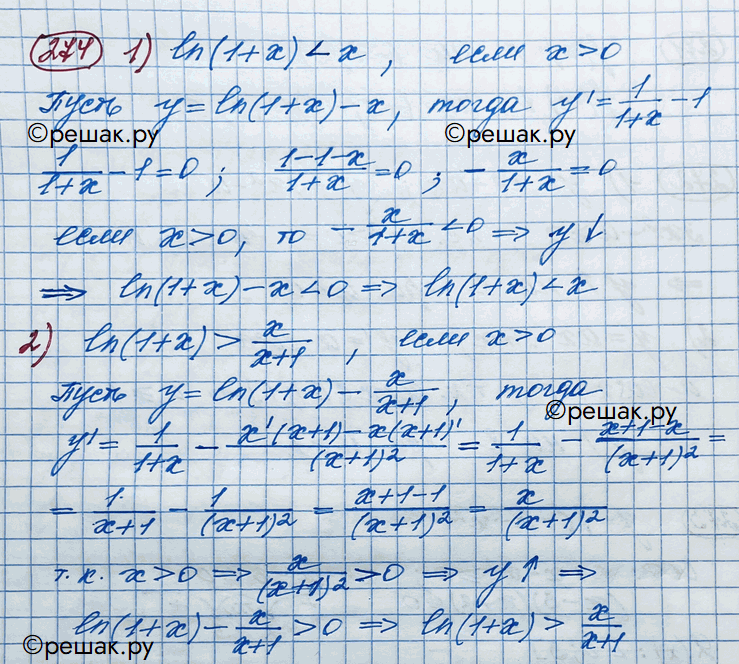 274 1) ln(1+x) < x, если x>0
Пусть y = ln(1+x) - x, тогда y' = 1/(1+x) - 1
©решак.ру ©решак.ру
1/(1+x) - 1 = 0; (1-1-x)/(1+x) = 0; - x/(1+x) = 0
если x>0, то - x/(1+x) < 0 ⇒ y ↓
⇒ ln(1+x) - x < 0 ⇒ ln(1+x) < x
2) ln(1+x) > x/(x+1), если x>0
Пусть y = ln(1+x) - x/(x+1), тогда
©решак.ру
y' = 1/(1+x) - (x'(x+1) - x(x+1)')/(x+1)² = 1/(1+x) - (x+1-x)/(x+1)² =
= 1/(x+1) - 1/(x+1)² = (x+1-1)/(x+1)² = x/(x+1)²
т.к. x>0 ⇒ x/(x+1)² > 0 ⇒ y ↑ ⇒
ln(1+x) - x/(x+1) > 0 ⇒ ln(1+x) > x/(x+1)
©решак.ру